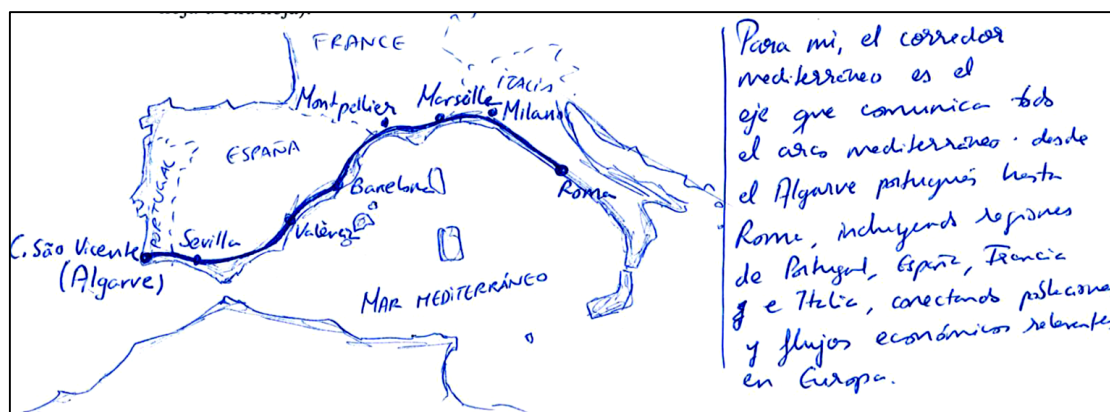 FRANCE
ITALIA
Montpellier
Marsella
Milano
ESPAÑA
PORTUGAL
Barcelona
Roma
València
Sevilla
C. São Vicente
(Algarve)
MAR MEDITERRÁNEO
Para mi, el corredor
mediterráneo es el
eje que comunica todo
el arco mediterráneo. desde
el Algarve portugués hasta
Roma, incluyendo regiones
de Portugal, España, Francia
y e Italia, conectando poblaciones
y flujos económicos relevantes
en Europa.